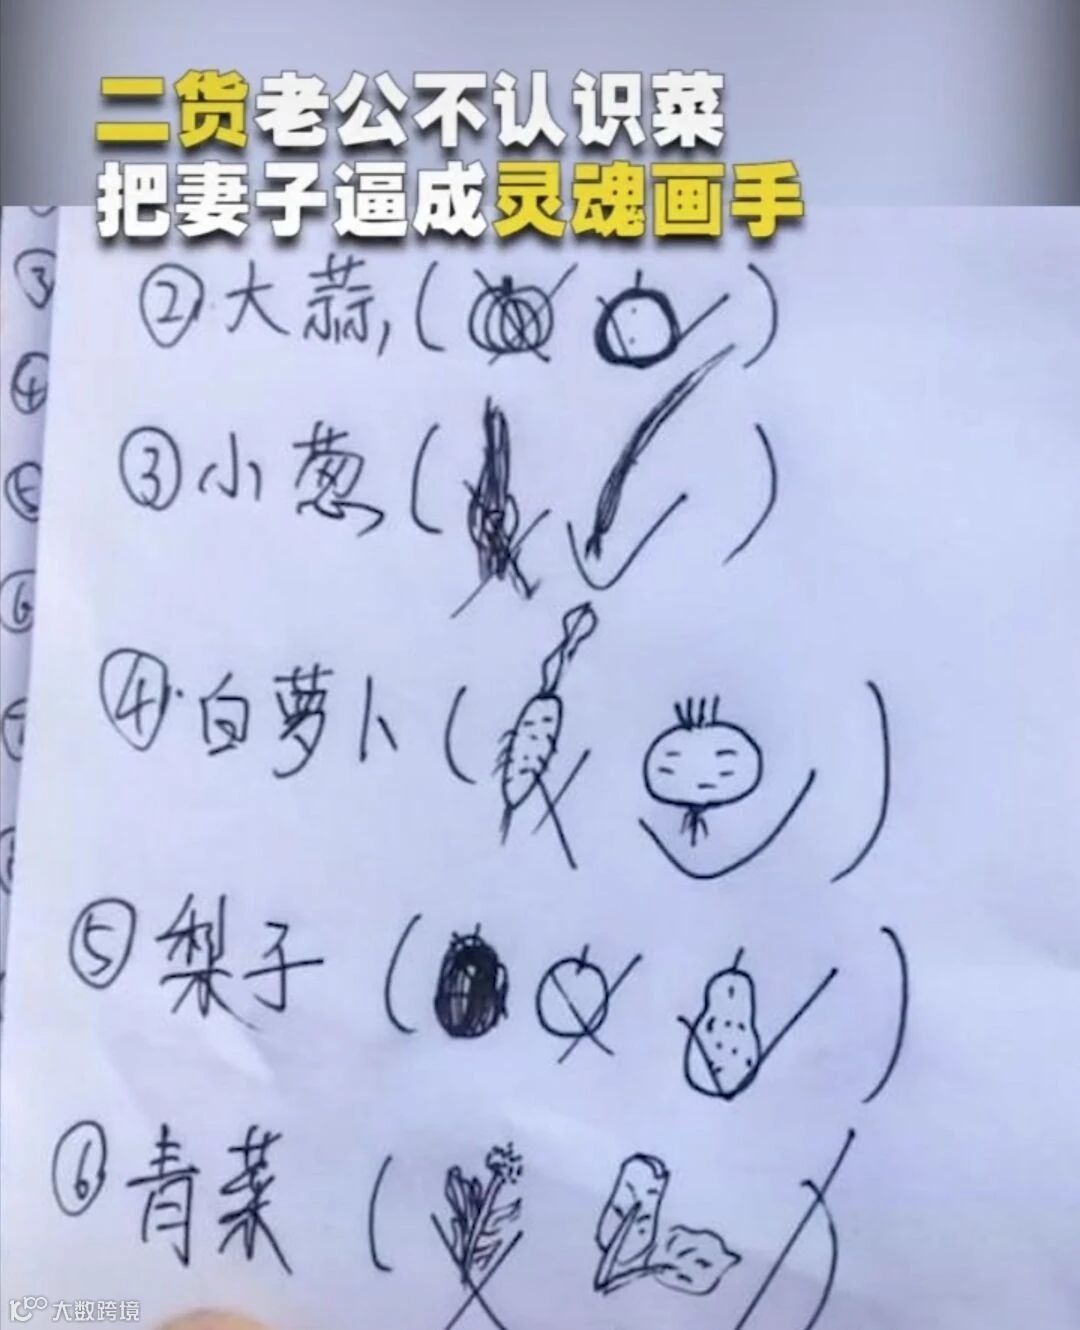 二货老公不认识菜
把妻子逼成灵魂画手
③
②大蒜,(  )
④
③小葱(  )
⑤
⑥
④.白萝卜(  )
⑤梨子(  )
⑥青菜(  )
大数跨境